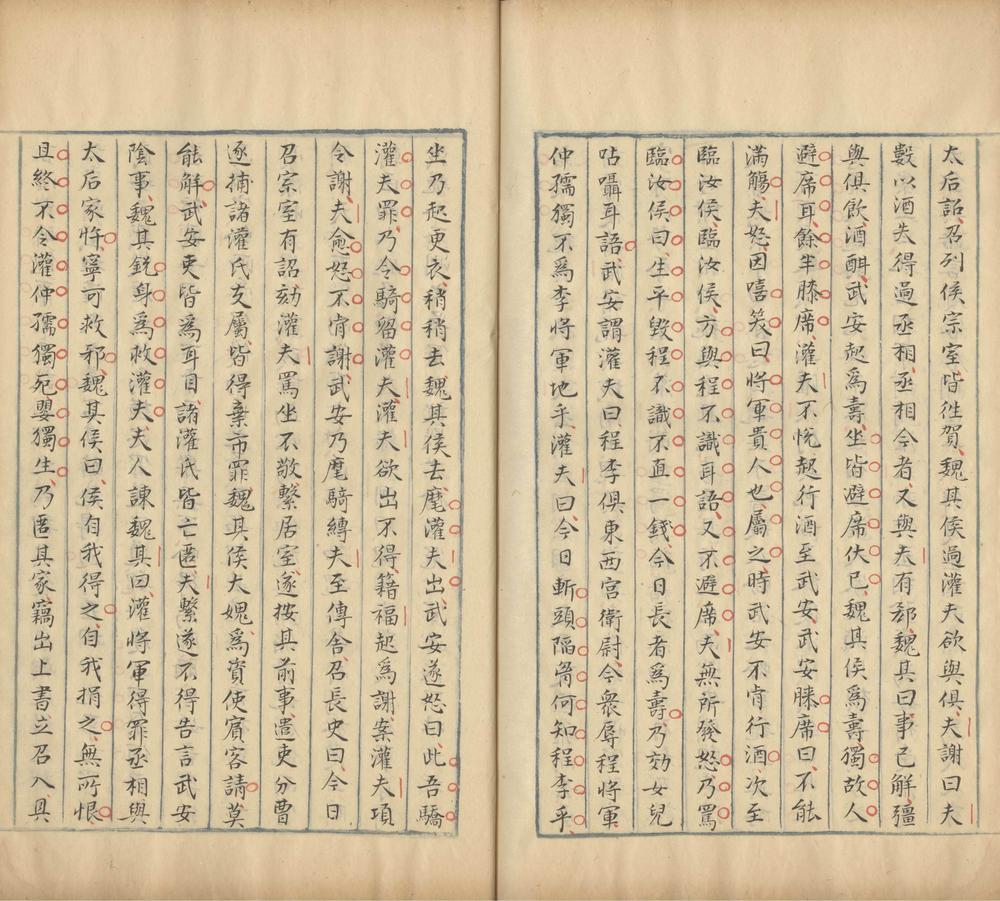 太后詔召列侯宗室皆徃賀魏其侯過灌夫欲與俱夫謝曰夫
數以酒失得過丞相丞相今者又與夫有郄魏其曰事已解彊
與俱飲酒酣武安起爲壽坐皆避席伏已魏其侯爲壽獨故人
避席耳餘半膝席灌夫不悅起行酒至武安武安膝席曰不能
滿觴夫怒因嘻笑曰將軍貴人也屬之時武安不肯行酒次至
臨汝侯臨汝侯方與程不識耳語又不避席夫無所發怒乃罵
臨汝侯曰生平毀程不識不直一錢今日長者爲壽乃效女兒
呫囁耳語武安謂灌夫曰程李俱東西宮衛尉今衆辱程將軍
仲孺獨不爲李將軍地乎灌夫曰今日斬頭陷胷何知程李乎
坐乃起更衣稍稍去魏其侯去麾灌夫出武安遂怒曰此吾驕
灌夫罪乃令騎留灌夫灌夫欲出不得籍福起爲謝案灌夫項
令謝夫愈怒不肯謝武安乃麾騎縛夫至傳舍召長史曰今日
召宗室有詔劾灌夫罵坐不敬繫居室遂按其前事遣吏分曹
逐捕諸灌氏支屬皆得棄市罪魏其侯大媿爲資使賓客請莫
能解武安吏皆爲耳目諸灌氏皆亡匿夫繫遂不得告言武安
陰事魏其銳身爲救灌夫夫人諫魏其曰灌將軍得罪丞相與
太后家忤寧可救邪魏其侯曰侯自我得之自我捐之無所恨
且終不令灌仲孺獨死嬰獨生乃匿其家竊出上書立召入具